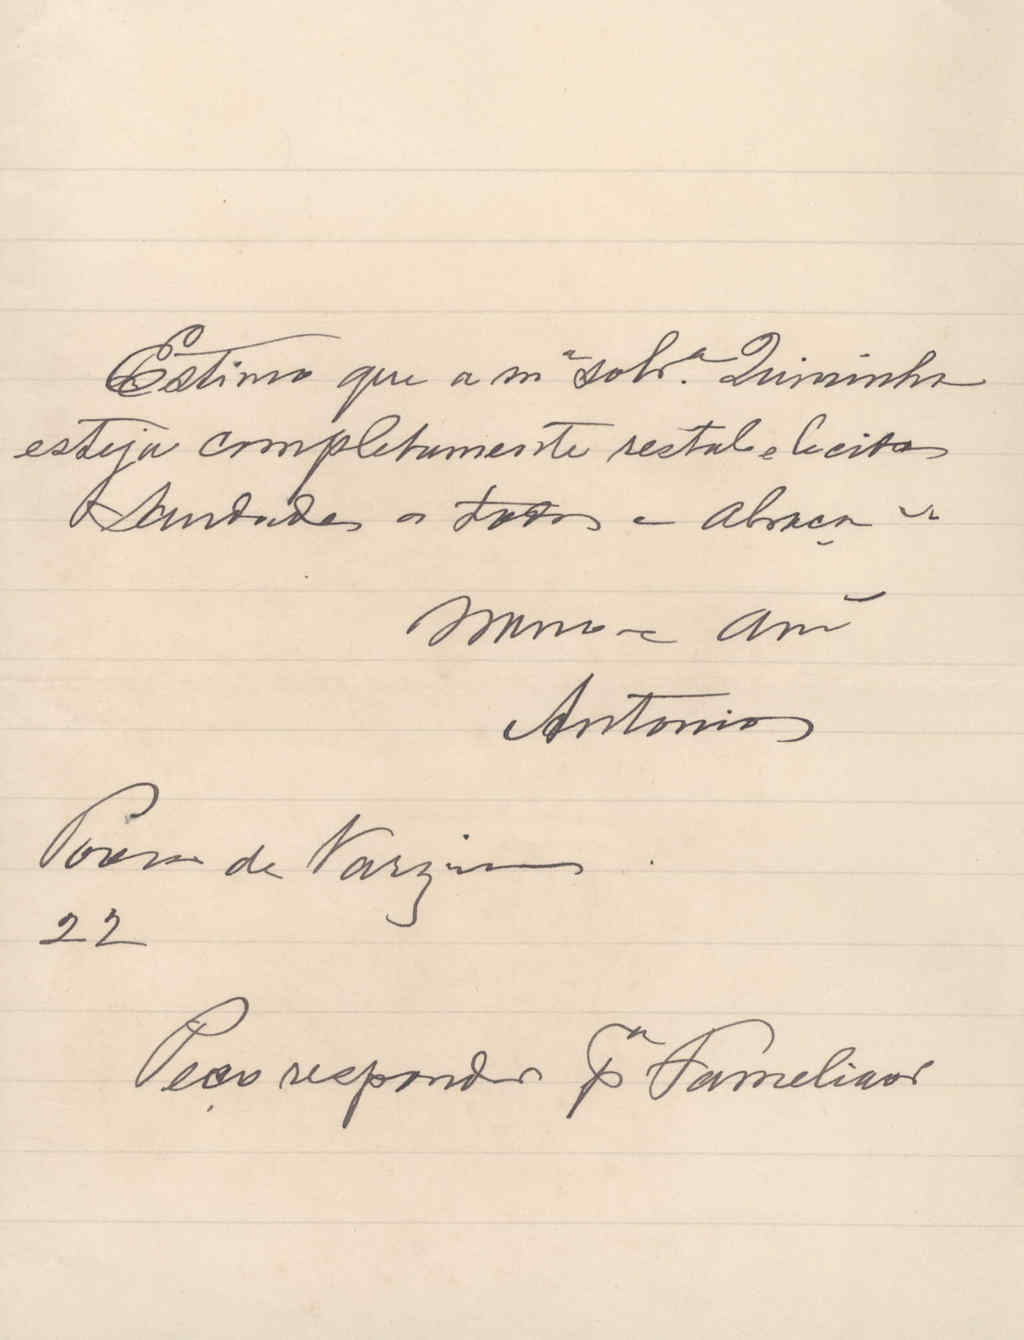 Estimo que a mª sobr.ª Quininha
esteja completamente restabelecida
Saudades a todos e abraça-vos
mano e amº
Antonio
Povoa de Varzim
22
Peço responder pª Famelicão